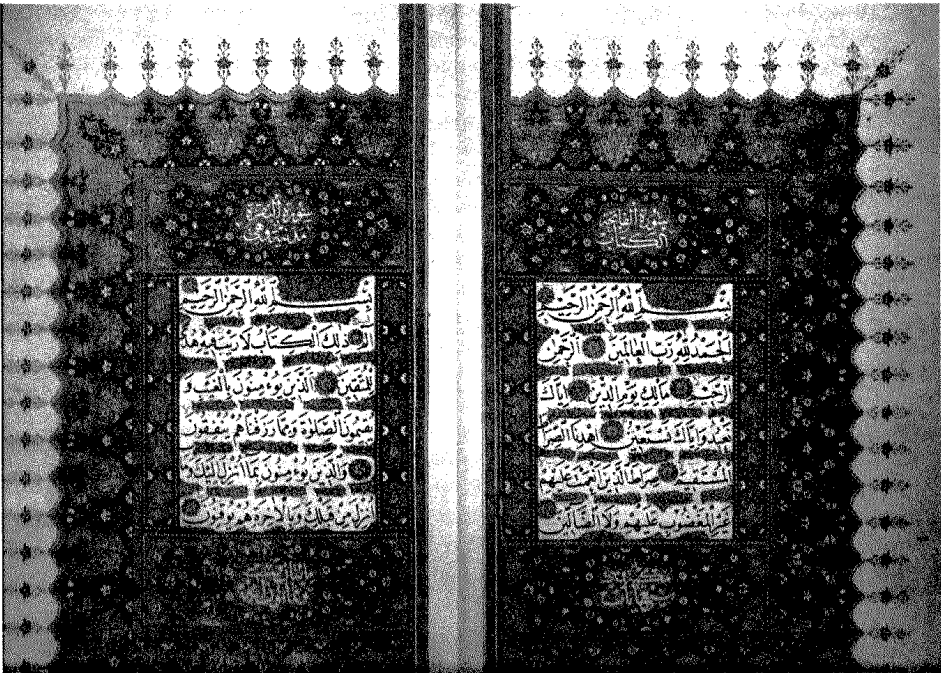 سورة الفاتحة
الكتاب
بسم الله الرحمن الرحيم
الحمد لله رب العالمين الرحمن
الرحيم مالك يوم الدين اياك
نعبد واياك نستعين اهدنا الصراط
المستقيم صراط الذين انعمت عليهم
غير المغضوب عليهم ولا الضالين
سورة البقرة
بسم الله الرحمن الرحيم
الم ذلك الكتاب لا ريب فيه هدى
للمتقين الذين يؤمنون بالغيب و
يقيمون الصلاة ومما رزقناهم ينفقون
والذين يؤمنون بما انزل اليك وما
انزل من قبلك وبالاخرة هم يوقنون